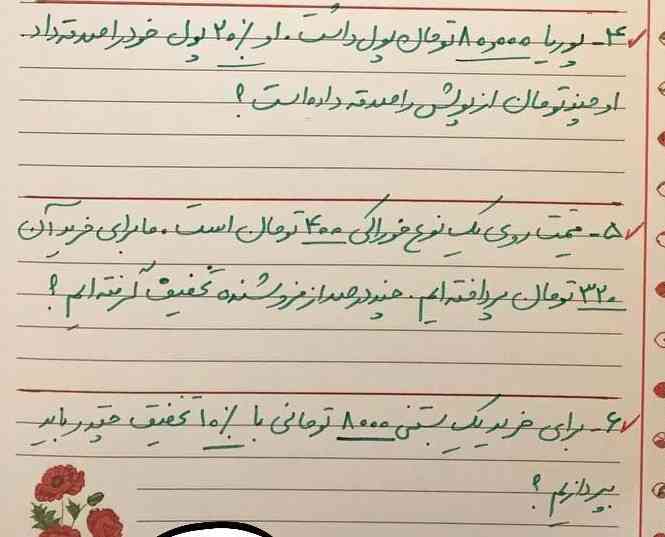 ۴- پوریا ۸۰,۰۰۰ تومان پول داشت. او ۲۰٪ پول خود را صدقه داد.
او چند تومان از پولش را صدقه داده است ؟
۵- قیمت روی یک نوع خوراکی ۴۰۰ تومان است. ما برای خرید آن
۳۲۰ تومان پرداخته ایم. چند درصد از فروشنده تخفیف گرفته ایم ؟
۶- برای خرید یک بستنی ۸۰۰۰ تومانی با ۱۰٪ تخفیف چقدر باید
بپردازیم ؟